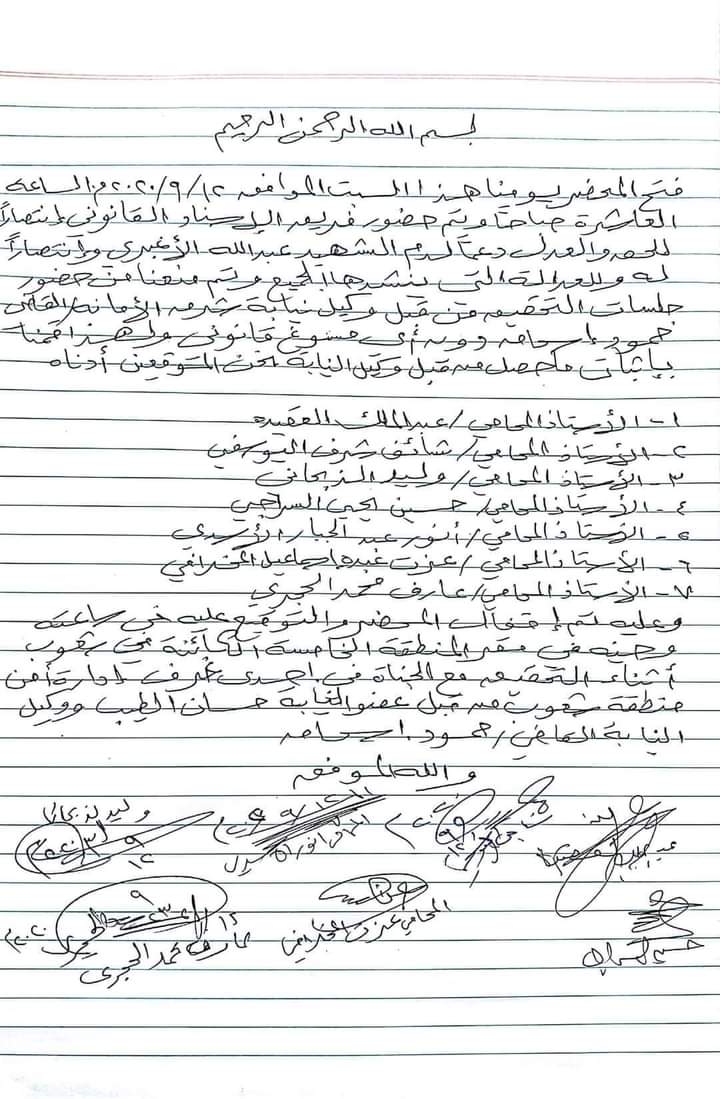 بسم الله الرحمن الرحيم
فتح المحضر يومنا هذا السبت الموافق ١٢/٩/٢٠٢٠م الساعة
العاشرة صباحاً وتم حضور فريق الإسناد القانوني إنتصاراً
للحق والعدل دعماً لدم الشهيد عبدالله الأغبري وإنتصاراً
له وللعدالة التي ينشدها الجميع وتم منعنا من حضور
جلسات التحقيق من قبل وكيل نيابة شرق الأمانة/القاضي
حمود إسحاق دون أي مسوغ قانوني ولهذا قمنا
بإثبات ما حصل من قبل وكيل النيابة نحن الموقعين أدناه
١- الأستاذ المحامي/عبدالملك العقيده
٢- الأستاذ المحامي/شائق شرف اليوسفي
٣- الأستاذ المحامي/وليد الذبحاني
٤- الأستاذ المحامي/حسين يحيى السراجي
٥- الأستاذ المحامي/أنور عبد الجبار الأسدي
٦- الأستاذ المحامي/عزت عبده إسماعيل المخرافي
٧- الأستاذ المحامي/عارف محمد الحجري
وعليه تم إقفال المحضر والتوقيع عليه في ساعته
وحينه في مقر المنطقة الخامسة الكائنة في شعوب
أثناء التحقيق مع الجناة في احدى غرف إدارة أمن
منطقة شعوب من قبل عضو النيابة حسان الطيب ووكيل
النيابة القاضي/حمود إسحاق
والله الموفق
وليد الذبحاني
المحامي عزت المخرافي
عارف محمد الحجري